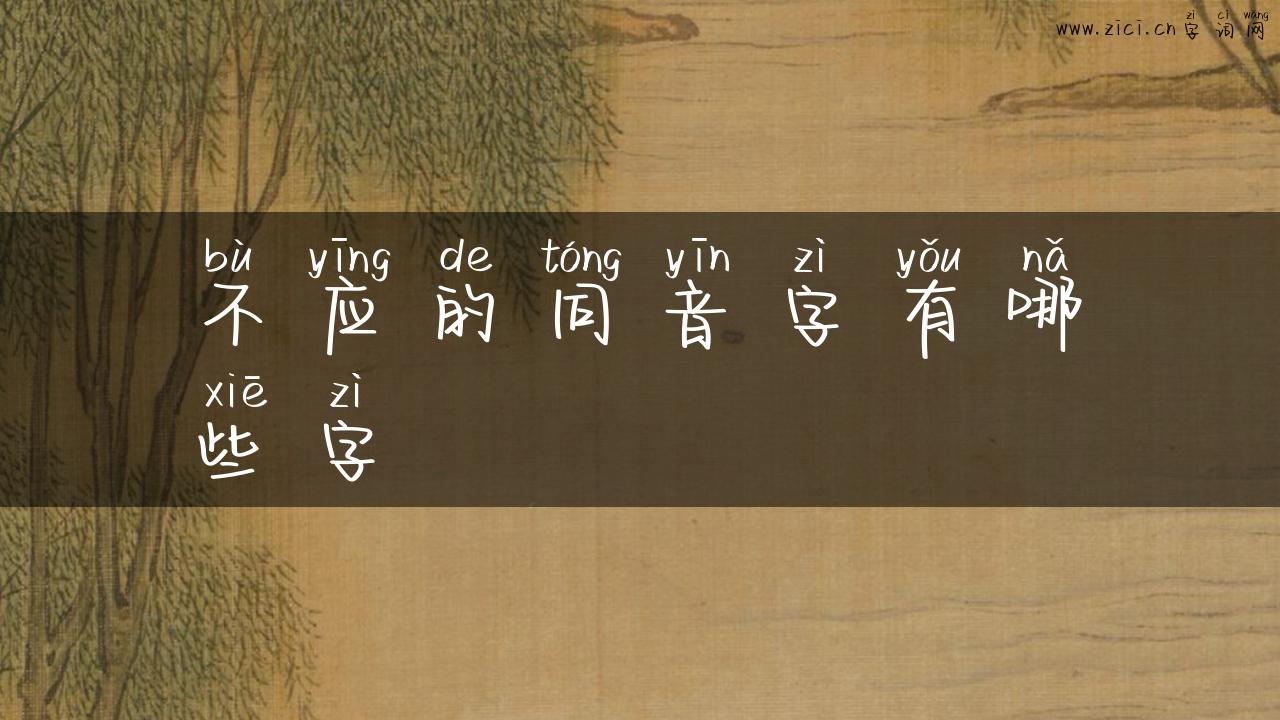 zì cí wǎng
www.zici.cn 字 词 网
bù yīng de tóng yīn zì yǒu nǎ
不 应 的 同 音 字 有 哪
xiē zì
些 字